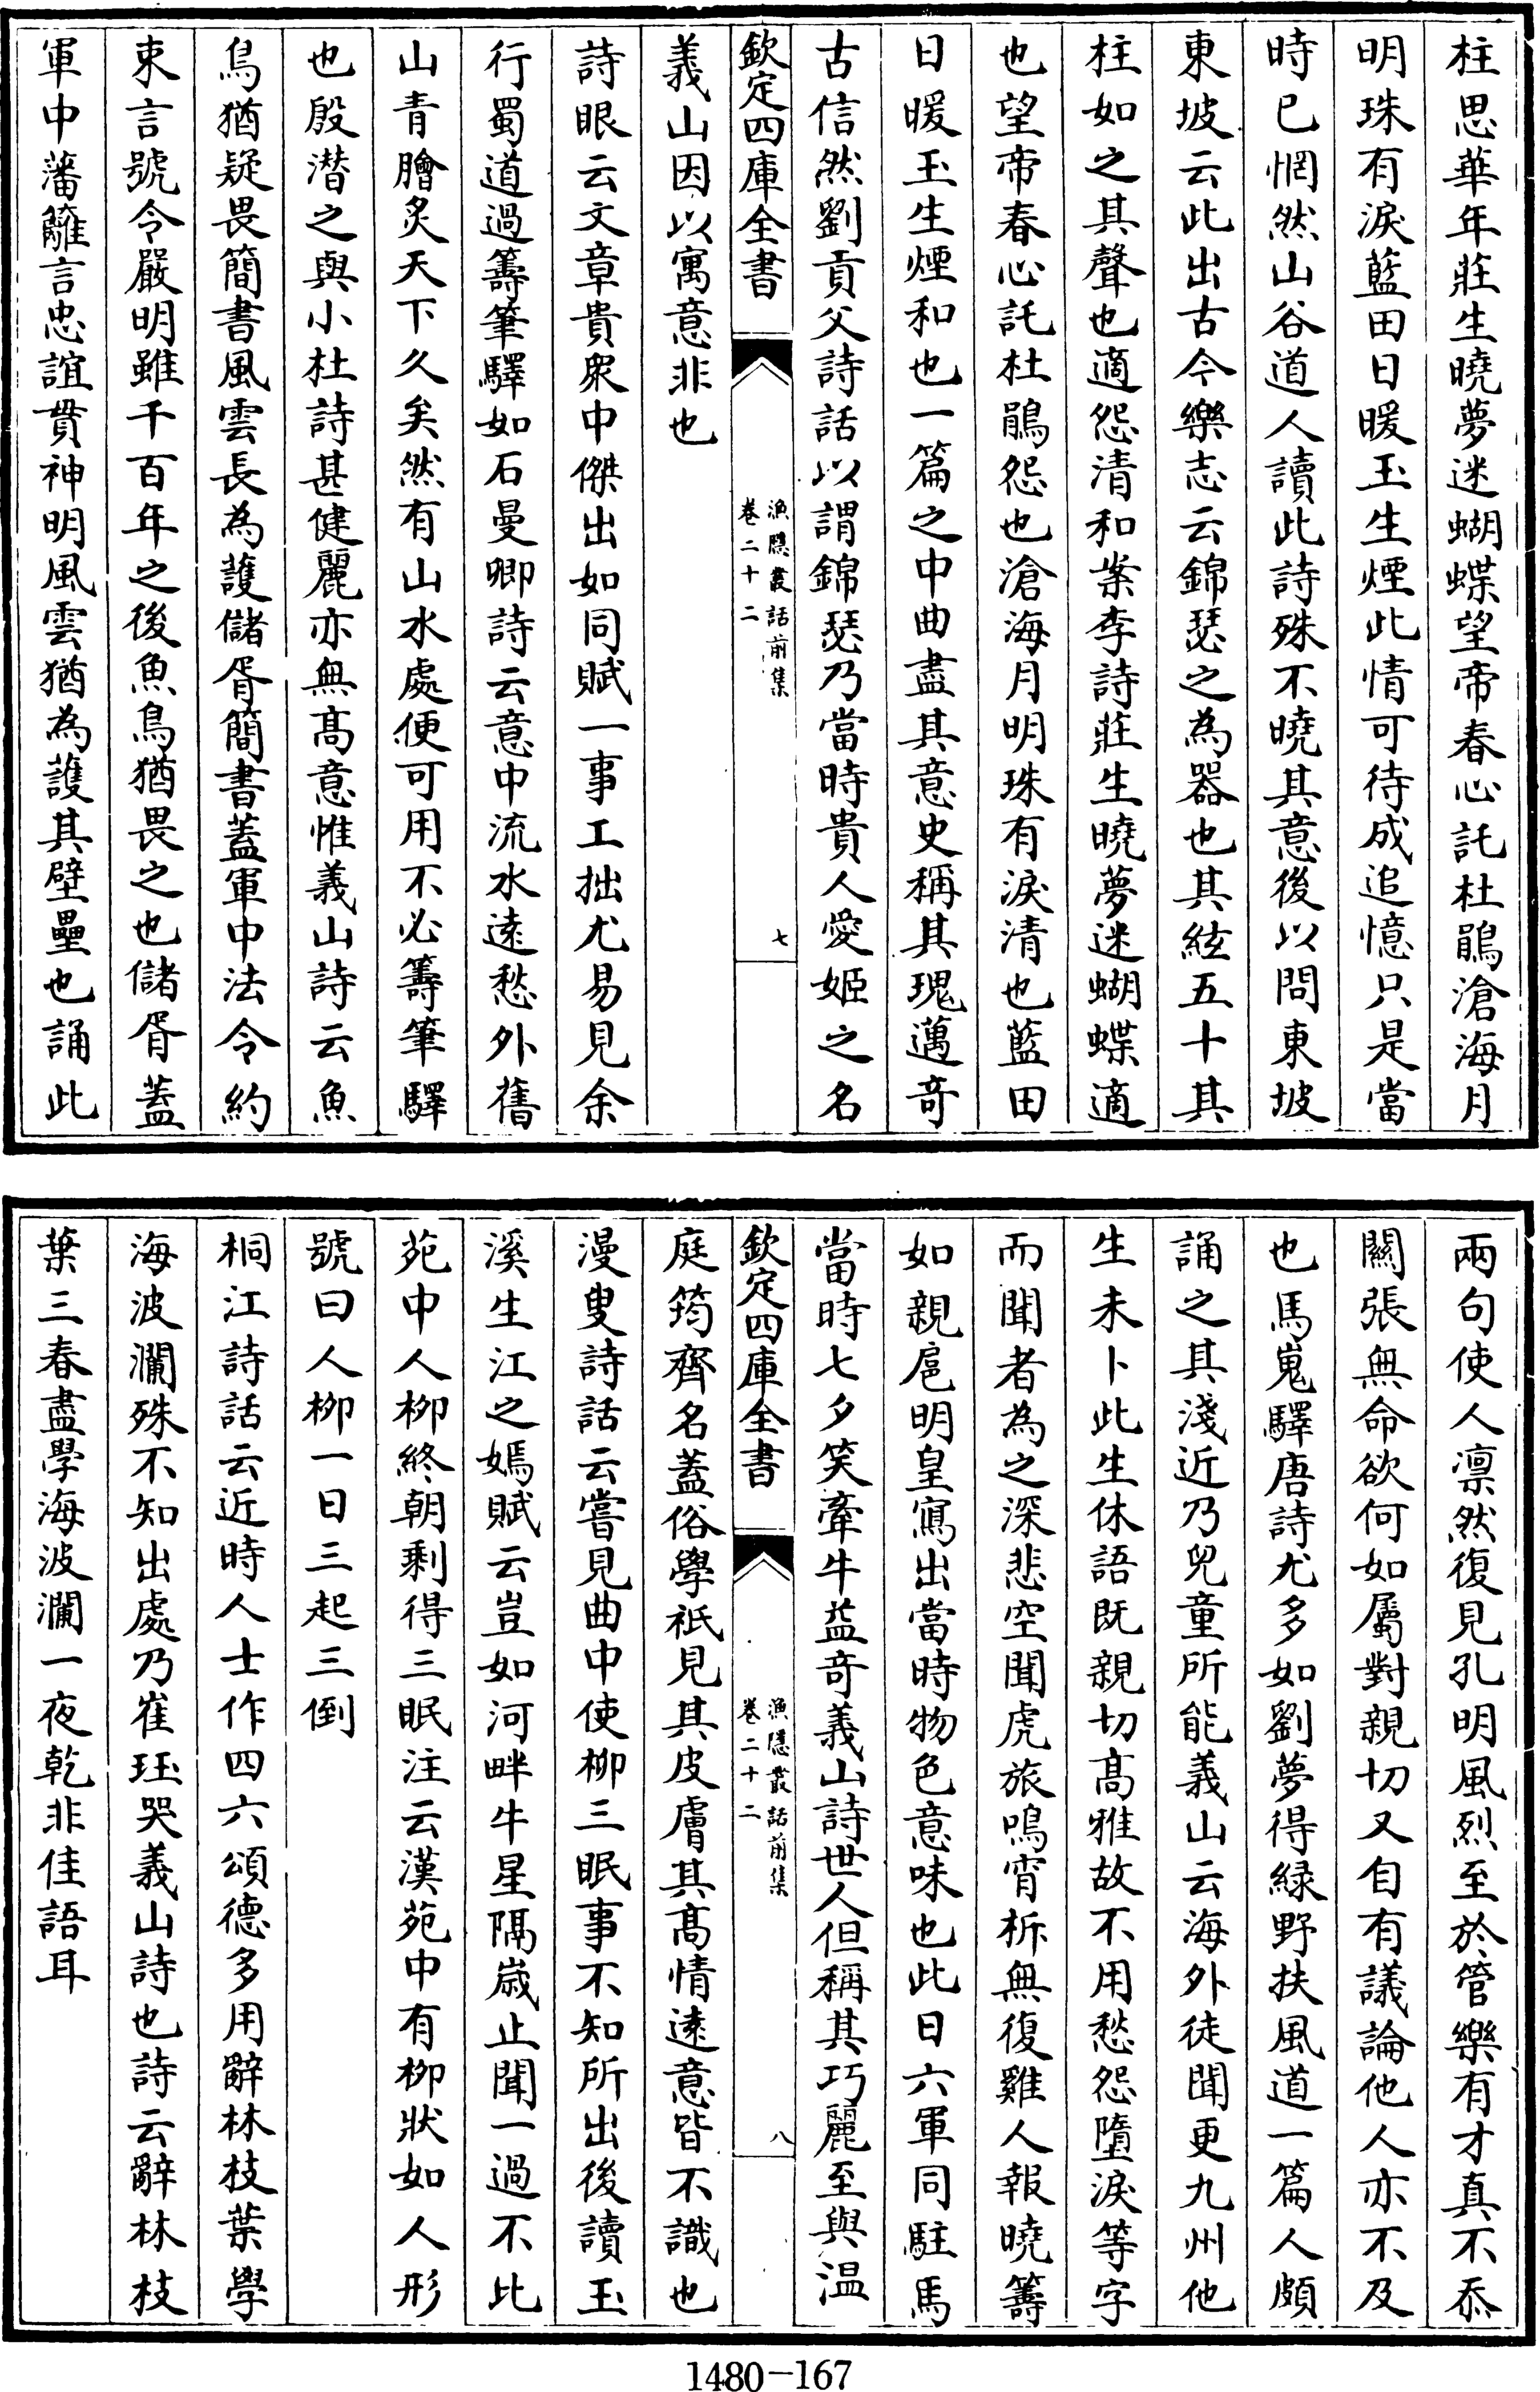 柱思華年莊生曉夢迷蝴蝶望帝春心託杜鵑滄海月
明珠有淚藍田日暖玉生煙此情可待成追憶只是當
時已惘然山谷道人讀此詩殊不曉其意後以問東坡
東坡云此出古今樂志云錦瑟之為器也其絃五十其
柱如之其聲也適怨清和案李詩莊生曉夢迷蝴蝶適
也望帝春心託杜鵑怨也滄海月明珠有淚清也藍田
日暖玉生煙和也一篇之中曲盡其意史稱其瑰邁奇
古信然劉貢父詩話以謂錦瑟乃當時貴人愛姬之名
欽定四庫全書
漁隱叢話前集
卷二十二
七
義山因以寓意非也
詩眼云文章貴衆中傑出如同賦一事工拙尤易見余
行蜀道過籌筆驛如石曼卿詩云意中流水遠愁外舊
山青膾炙天下久矣然有山水處便可用不必籌筆驛
也殷潛之與小杜詩甚健麗亦無髙意惟義山詩云魚
鳥猶疑畏簡書風雲長為護儲胥簡書蓋軍中法令約
束言號令嚴明雖千百年之後魚鳥猶畏之也儲胥蓋
軍中藩籬言忠誼貫神明風雲猶為護其壁壘也誦此
兩句使人凛然復見孔明風烈至於管樂有才真不忝
關張無命欲何如屬對親切又自有議論他人亦不及
也馬嵬驛唐詩尤多如劉夢得緑野扶風道一篇人頗
誦之其淺近乃兒童所能義山云海外徒聞更九州他
生未卜此生休語既親切髙雅故不用愁怨墮淚等字
而聞者為之深悲空聞虎旅鳴宵柝無復雞人報曉籌
如親扈明皇寫出當時物色意味也此日六軍同駐馬
當時七夕笑牽牛益奇義山詩世人但稱其巧麗至與溫
欽定四庫全書
漁隱叢話前集
卷二十二
八
庭筠齊名蓋俗學祇見其皮膚其髙情遠意皆不識也
漫叟詩話云嘗見曲中使柳三眠事不知所出後讀玉
溪生江之嫣賦云豈如河畔牛星隔嵗止聞一過不比
苑中人柳終朝剩得三眠注云漢苑中有柳狀如人形
號曰人柳一日三起三倒
桐江詩話云近時人士作四六頌德多用辭林枝葉學
海波瀾殊不知出處乃崔珏哭義山詩也詩云辭林枝
葉三春盡學海波瀾一夜乾非佳語耳
1480-167